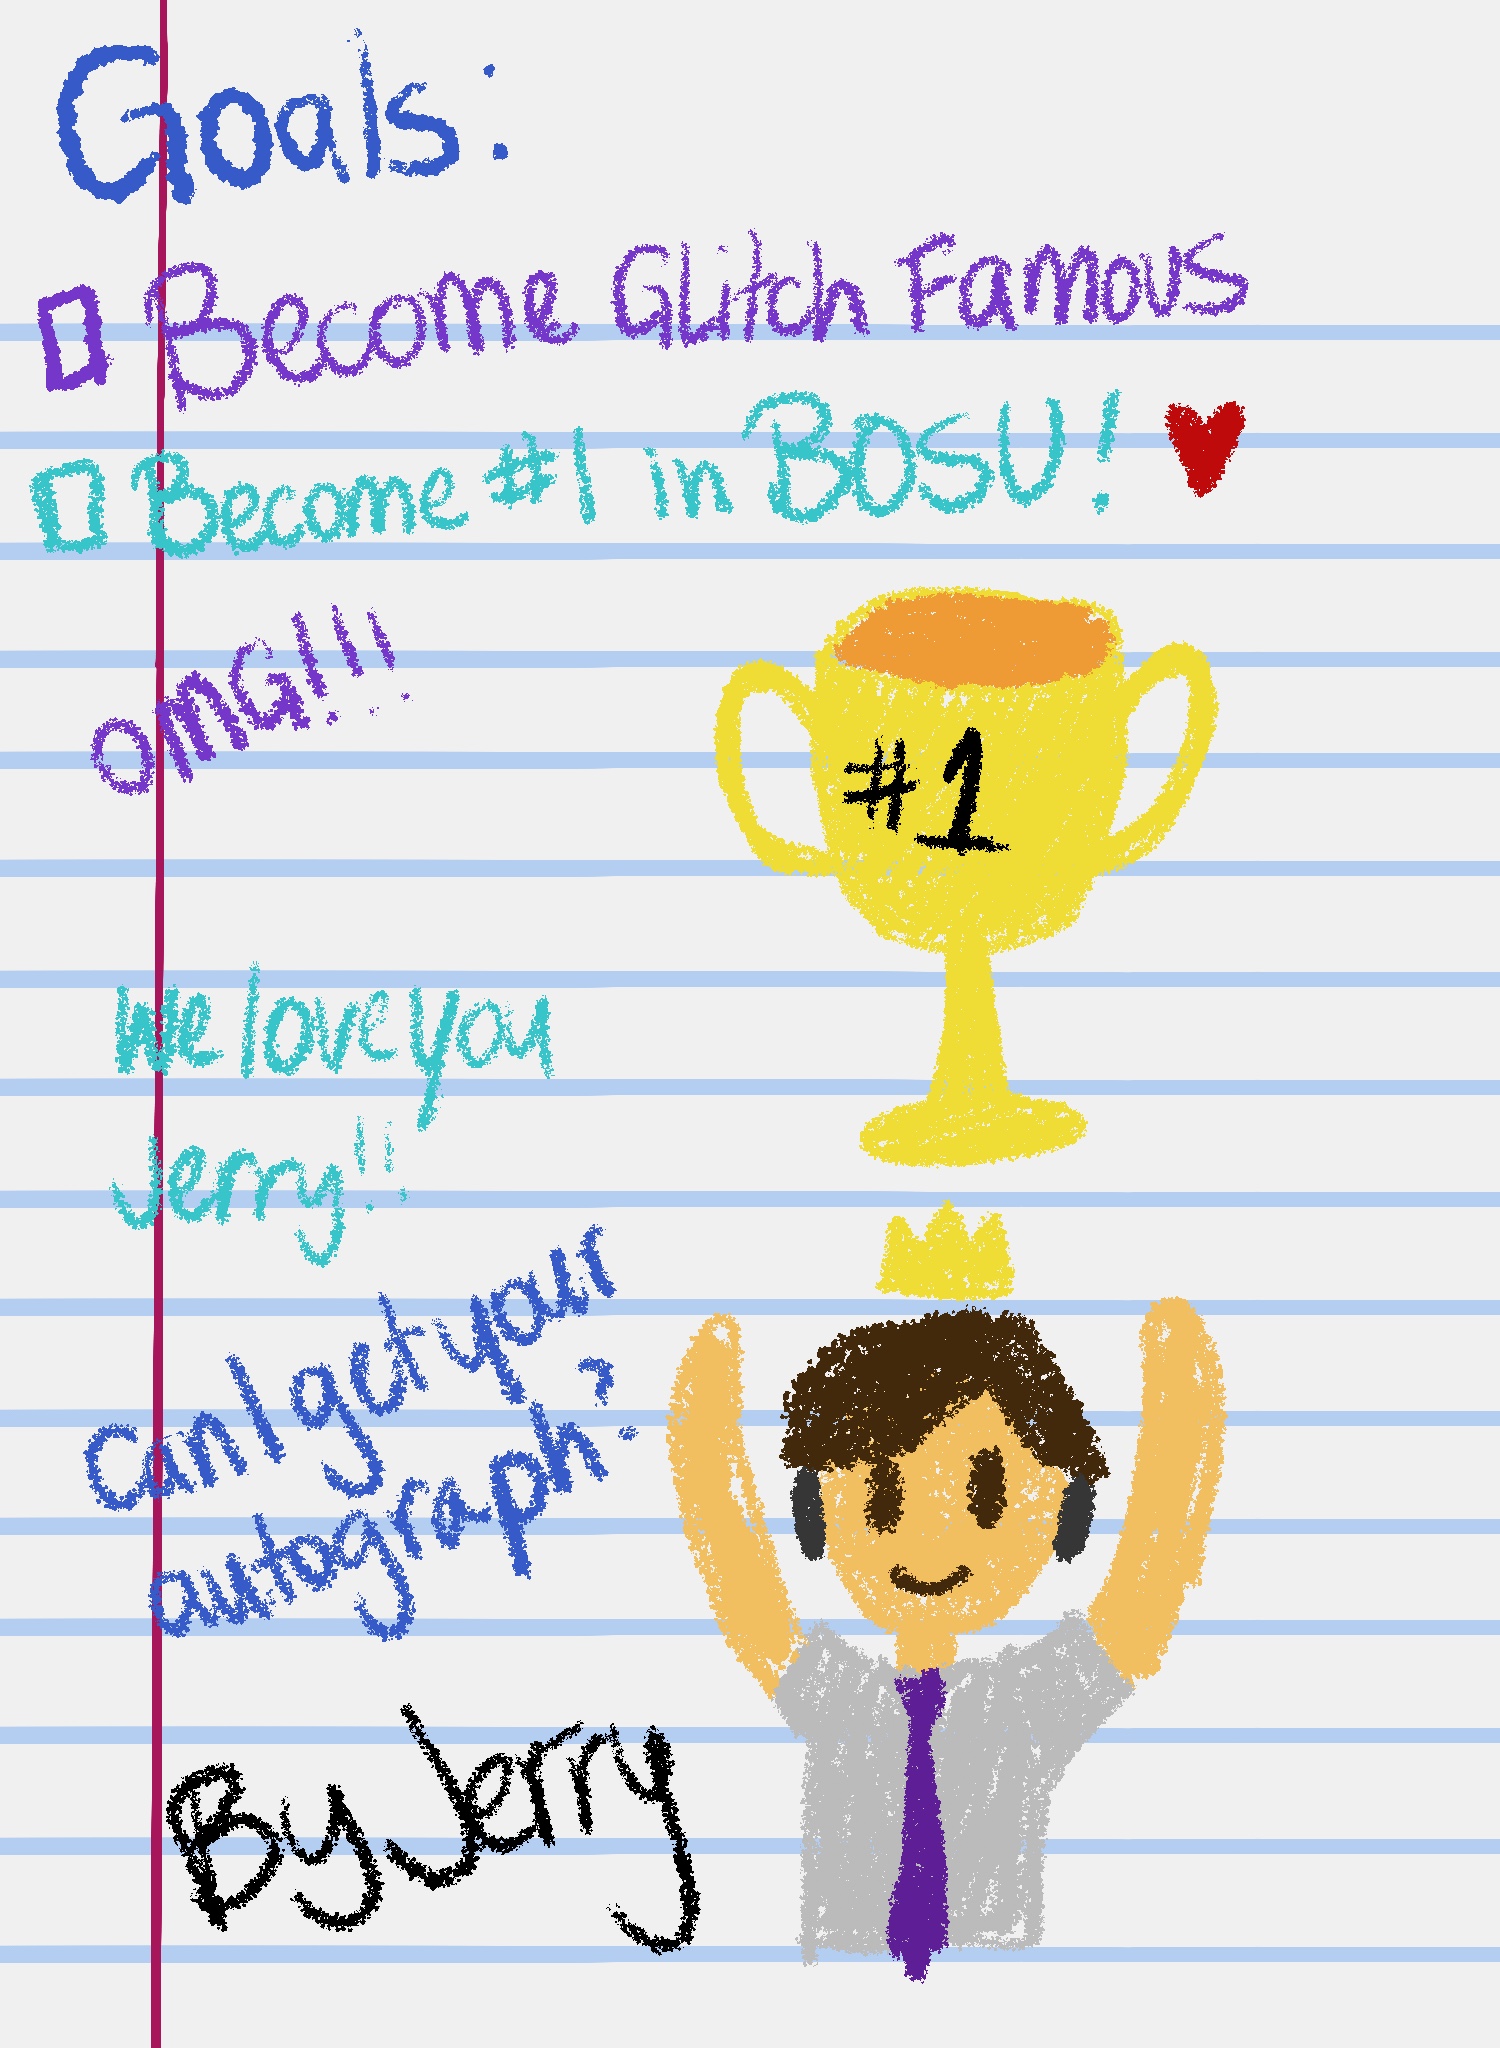 Goals:
Become Glitch Famous
Become #1 in BOSU!
OMG!!!
#1
we love you
Jerry!!
Can I get your
autograph?
By Jerry